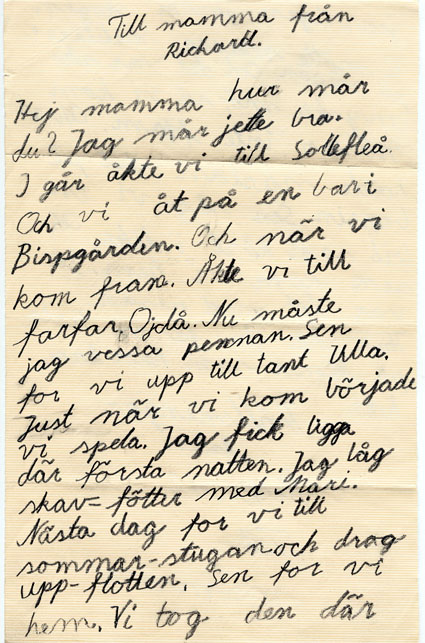 Till mamma från
Richard.
Hej mamma hur mår
du? Jag mår jette bra.
I går åkte vi till Sollefleå.
Och vi åt på en bari
Bispgården. Och när vi
kom fram. Åkte vi till
farfar. Ojdå. Nu måste
jag vessa pennan. Sen
for vi upp till tant Ulla.
Just när vi kom började
vi spela. Jag fick ligga
där första natten. Jag låg
skav=fötter med Mari.
Nästa dag for vi till
sommar-stugan och drog
upp-flotten. Sen for vi
hem. Vi tog den där